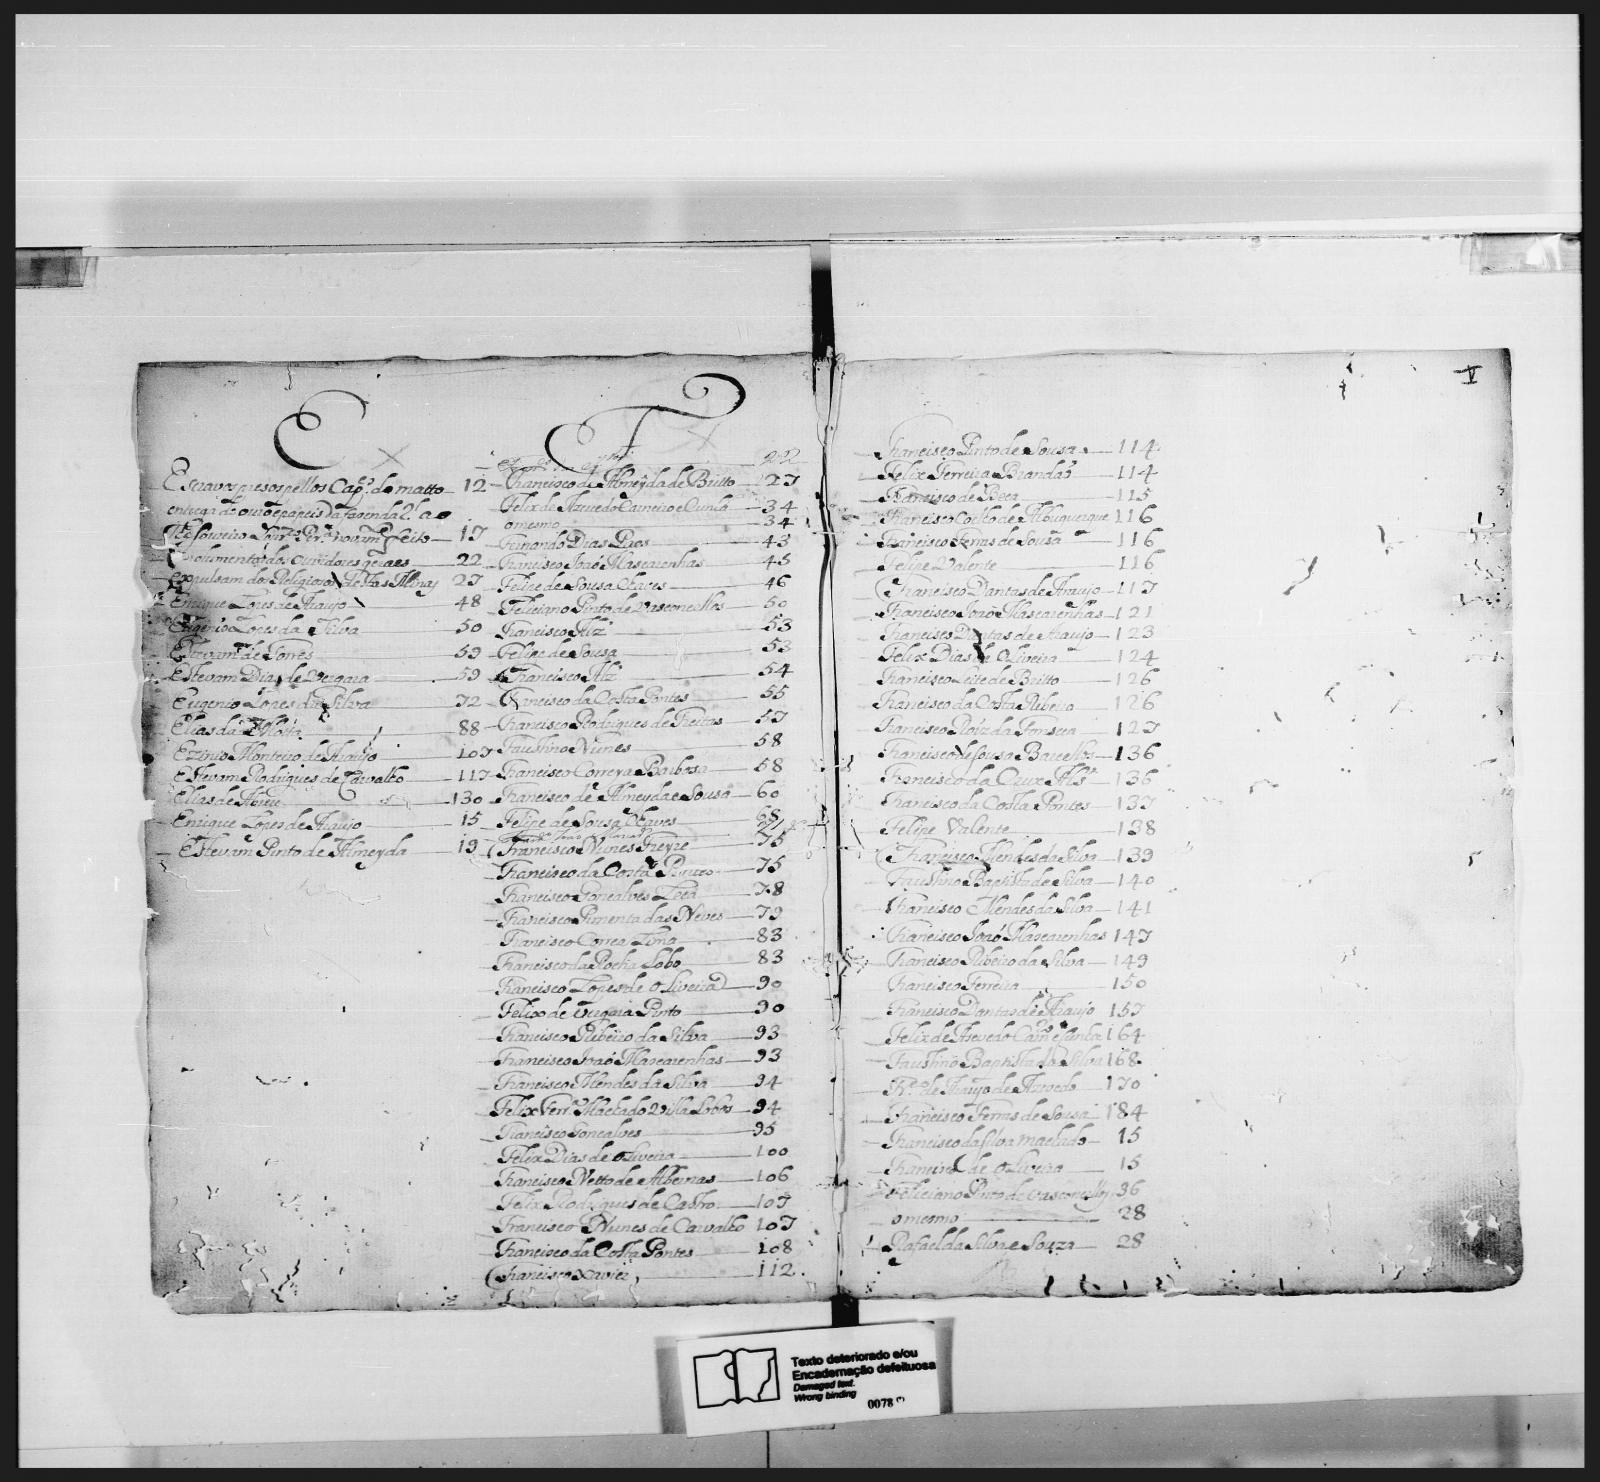 E
Escravos presos pellos Cap.es do matto 12
entrega do ouro e papeis da fazenda R.l ao
Thesoureiro Lour.ço Per.a novam.te feito 17
Emolumentos dos ouvidores geraes 22
expulsam dos Religiosos destas Minas 27
Enrique Lopes de Araujo 48
Eugenio Lopes da Silva 50
Estevam de Torres 59
Estevam Dias de Vergara 59
Eugenio Lopes da Silva 72
Elias da Motta 88
Monteiro de Araujo 107
Estevam Rodrigues de Carvalho 117
Elias de Abreu 130
Enrique Lopes de Araujo 15
Estevam Pinto de Almeyda 19
F
22
Francisco de Almeyda de Britto 27
Felix de Azevedo Carneiro e Cunha 34
o mesmo 34
Fernando Dias Paes 43
Francisco Joaó Mascarenhas 45
Felipe de Sousa Chaves 46
Feliciano Pinto de Vasconcellos 50
Francisco Alz 53
Felipe de Sousa 53
Francisco Alz 54
Francisco da Costa Pontes 55
Francisco Rodrigues de Freitas 57
Faustino Nunes 58
Francisco Correya Barbosa 58
Francisco de Almeyda e Sousa 60
Felipe de Sousa Chaves 68
Francisco Nunes Freyre 75
Francisco da Costa 75
Francisco Gonçalves 78
Francisco Pimenta das Neves 79
Francisco Correa Lima 83
Francisco da Rocha Lobo 83
Francisco Lopes de Oliveira 90
Felix de Vergara Pinto 90
Francisco Ribeiro da Silva 93
Francisco Joaó Mascarenhas 93
Francisco Mendes da Silva 94
Felix Ferr.a Machado Villa Lobos 94
Francisco Gonçalves 95
Felix Dias de Oliveira 100
Francisco Netto de Albernas 106
Felix Rodrigues de Castro 107
Francisco Nunes de Carvalho 107
Francisco da Costa Pontes 108
Francisco Xavier 112
V
Francisco Pinto de Sousa 114
Felix Ferreira Brandaó 114
Francisco de Beça 115
Francisco Coelho de Albuquerque 116
Francisco Ferras de Sousa 116
Felipe Valente 116
Francisco Dantas de Araujo 117
Francisco Joaó Mascarenhas 121
Francisco Dantas de Araujo 123
Felix Dias de Oliveira 124
Francisco Leite de Britto 126
Francisco da Costa Ribeiro 126
Francisco Roiz da Fonseca 127
Francisco de Sousa Barcellos 136
Francisco da Crux 136
Francisco da Costa Pontes 137
Felipe Valente 138
Francisco Mendes da Silva 139
Faustino Baptista de Silva 140
Francisco Mendes da Silva 141
Francisco Joaó Mascarenhas 147
Francisco Ribeiro da Silva 149
Francisco Ferreira 150
Francisco Dantas de Araujo 157
Felix de Azevedo Carn.o e Cunha 164
Faustino Baptista da Silva 168
Fr.co de Araujo de Azevedo 170
Francisco Ferras de Sousa 184
Francisco da Silva Machado 15
Francisco de Oliveira 15
Feliciano Pinto de Vasconcellos 36
o mesmo 28
Rafael da Silva e Souza 28
Texto deteriorado e/ou
Encadernação defeituosa
Damaged text.
Wrong binding
0078